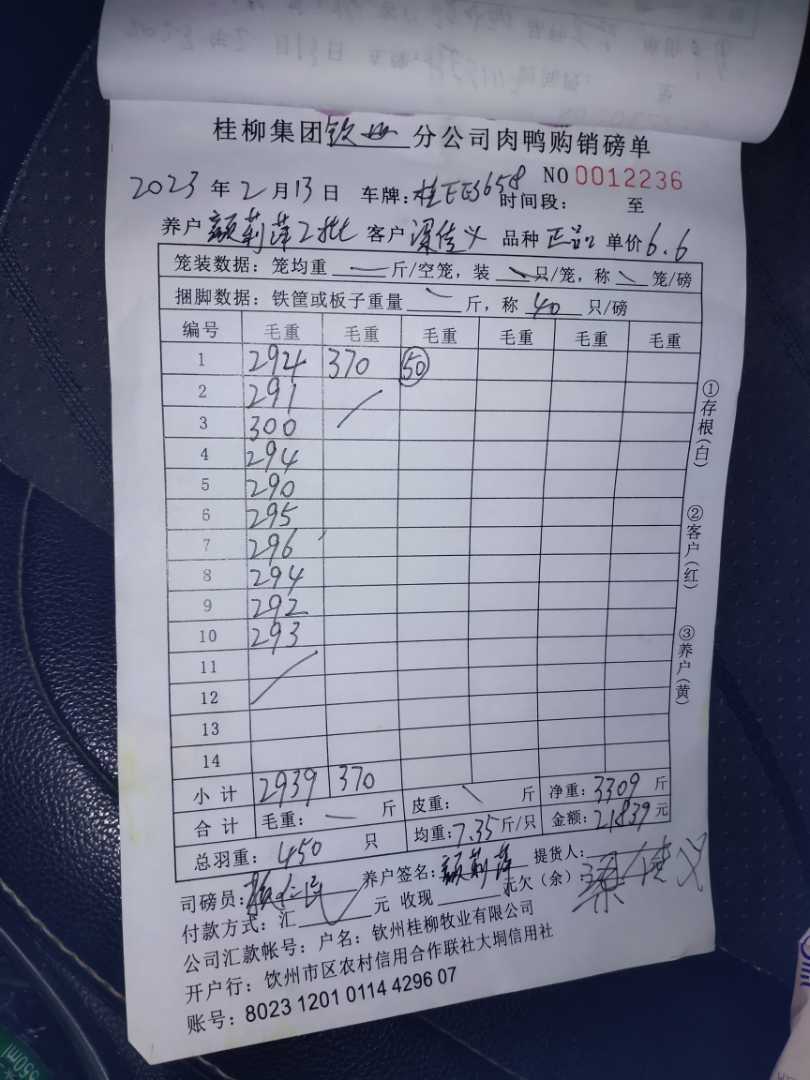 桂柳集团钦州分公司肉鸭购销磅单
NO 0012236
2023 年 2 月 13 日 车牌: 桂EE3658 时间段: 至
养户 颜莉萍2批 客户 梁佳义 品种 正品 单价 6.6
笼装数据: 笼均重 — 斤/空笼, 装 — 只/笼, 称 — 笼/磅
捆脚数据: 铁筐或板子重量 — 斤, 称 40 只/磅
编号 毛重 毛重 毛重 毛重 毛重 毛重
1 294 370 50
2 291
3 300
4 294
5 290
6 295
7 296
8 294
9 292
10 293
11
12
13
14
小计 2939 370
合计 毛重: — 斤 皮重: 斤 净重: 3309 斤
总羽重: 450 只 均重: 7.35 斤/只 金额: 21839 元
司磅员: 养户签名: 颜莉萍 提货人: 梁佳义
付款方式: 汇 元 收现 元欠(余):
公司汇款帐号: 户名: 钦州桂柳牧业有限公司
开户行: 钦州市区农村信用合作联社大垌信用社
账号: 8023 1201 0114 4296 07
①存根(白)
②客户(红)
③养户(黄)
550ml